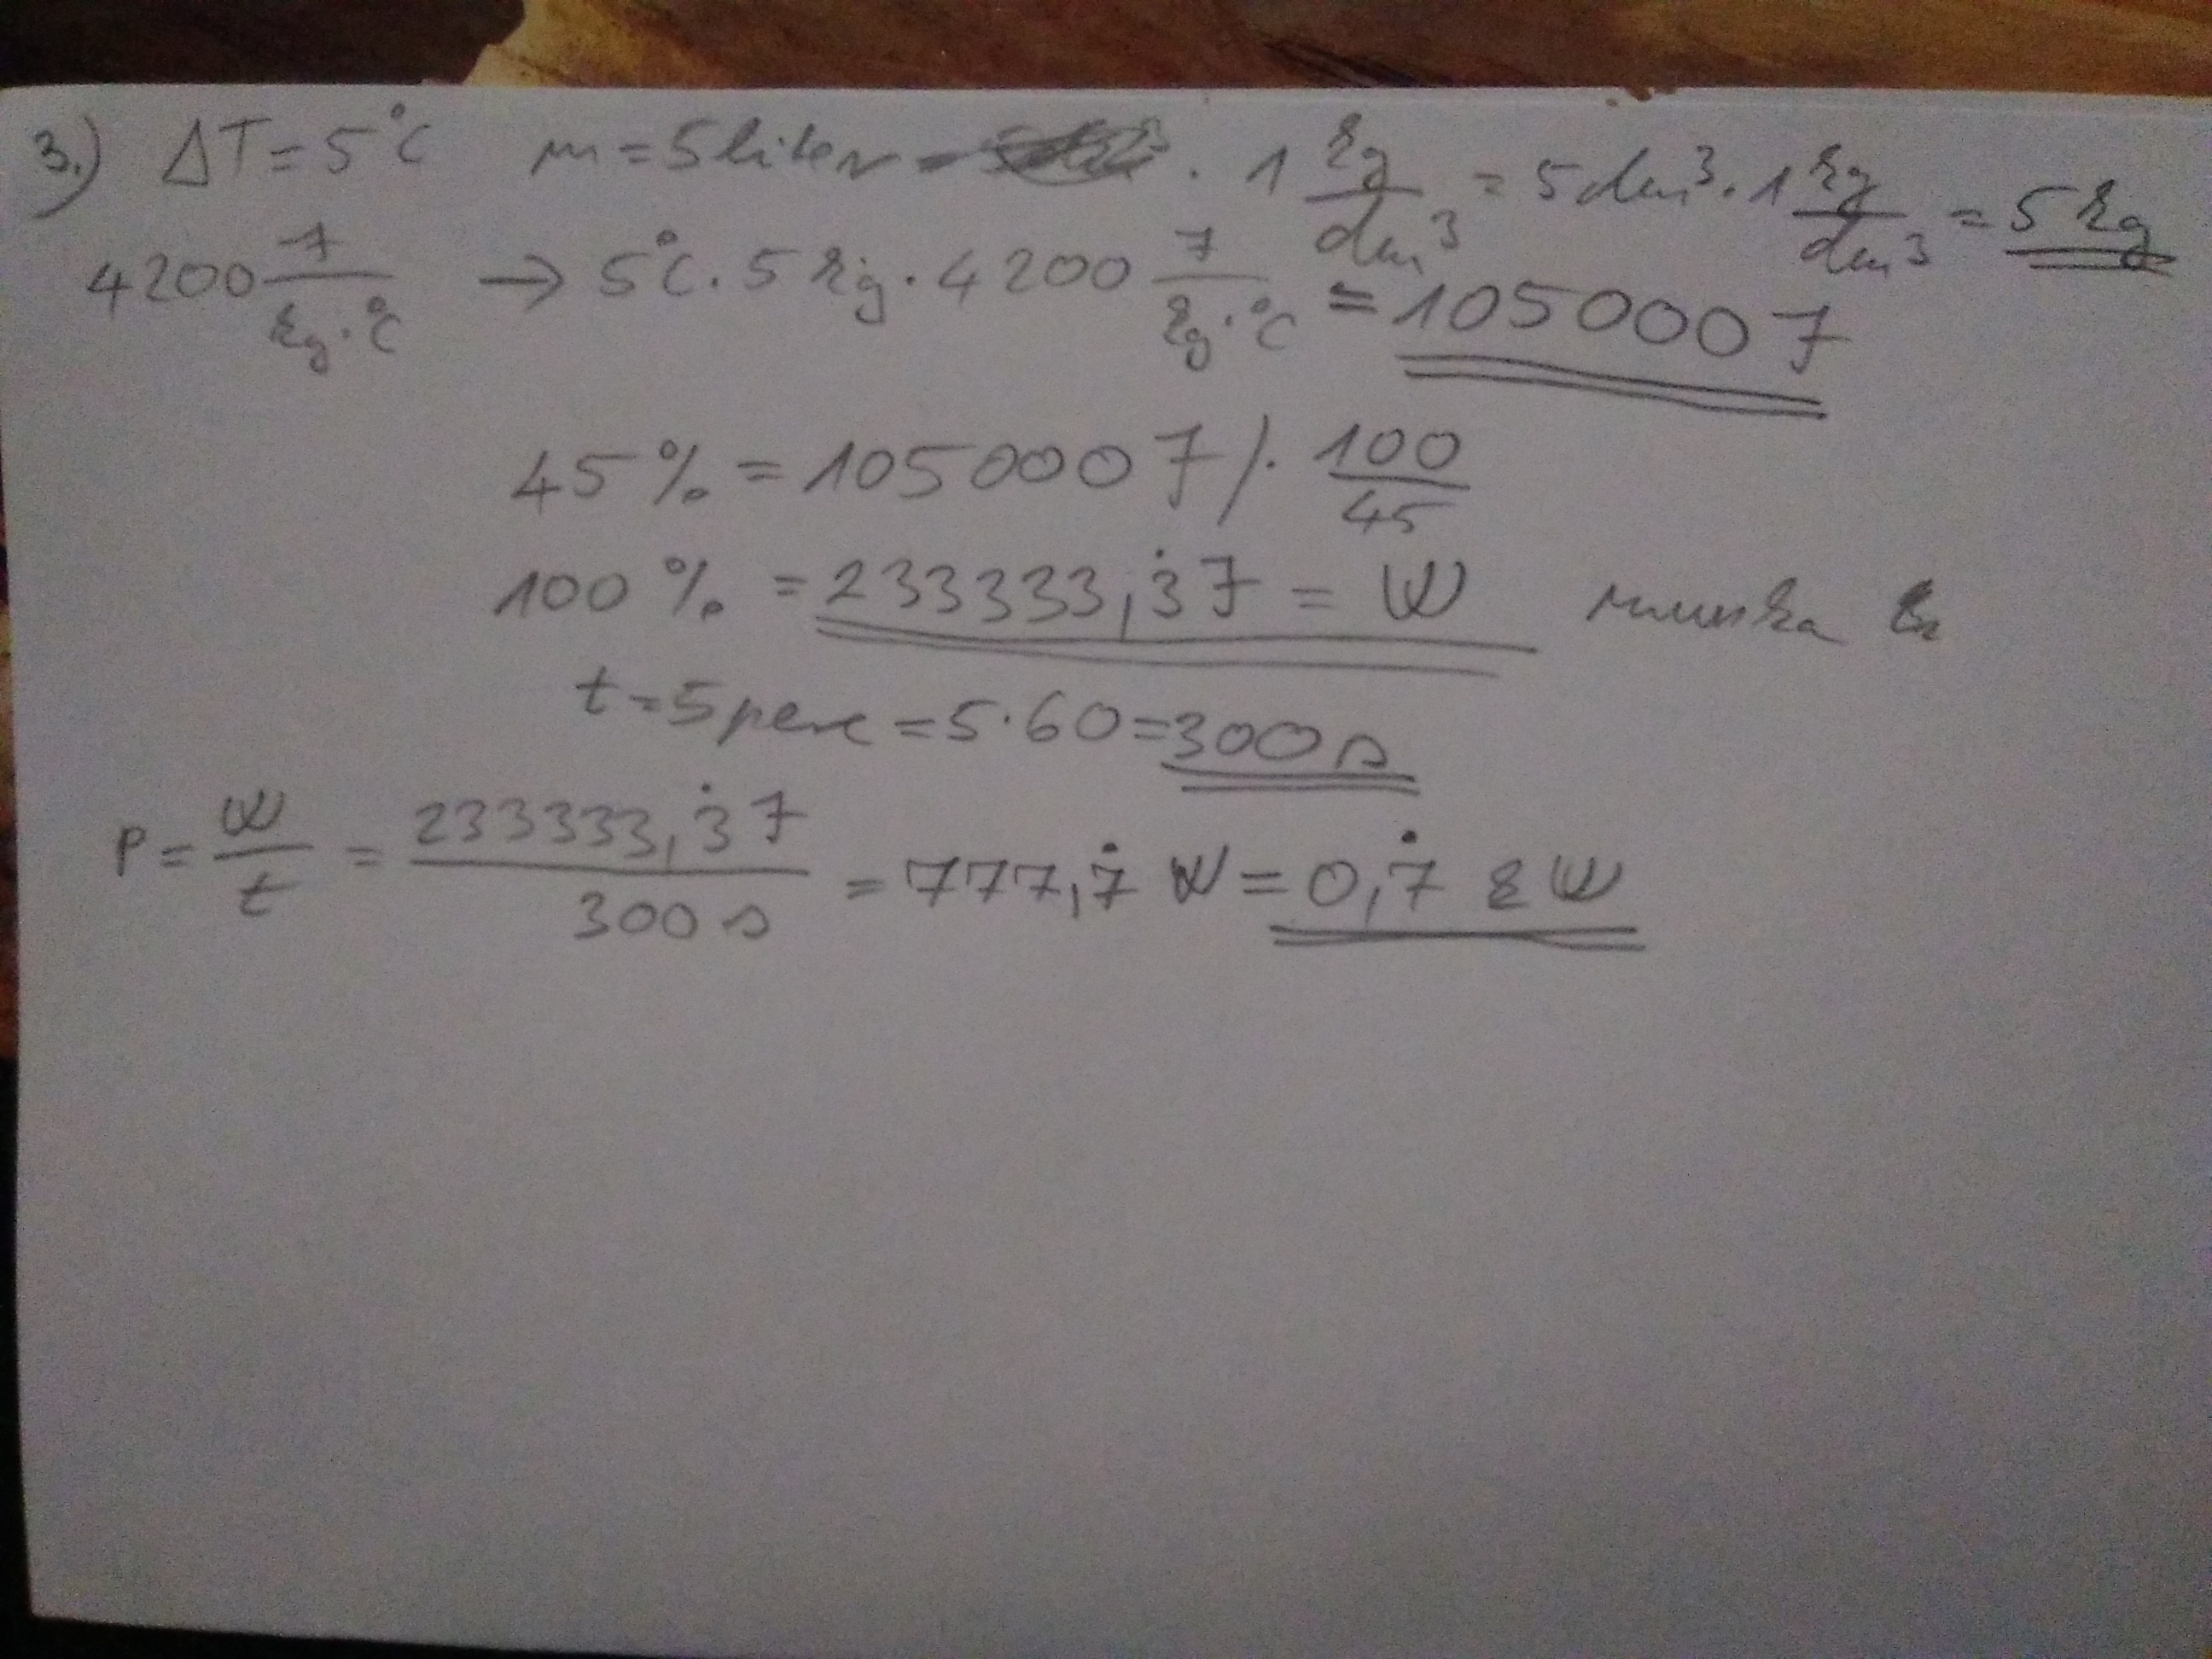 3.) ΔT = 5 °C m = 5 liter = · 1 kg/dm³ = 5 dm³ · 1 kg/dm³ = 5 kg
4200 J/kg·°C → 5 °C · 5 kg · 4200 J/kg·°C = 105000 J
45 % = 105000 J / · 100/45
100 % = 233333,3̇ J = W munka
t = 5 perc = 5·60 = 300 s
P = W/t = 233333,3̇ J/300 s = 777,7̇ W = 0,7̇ kW